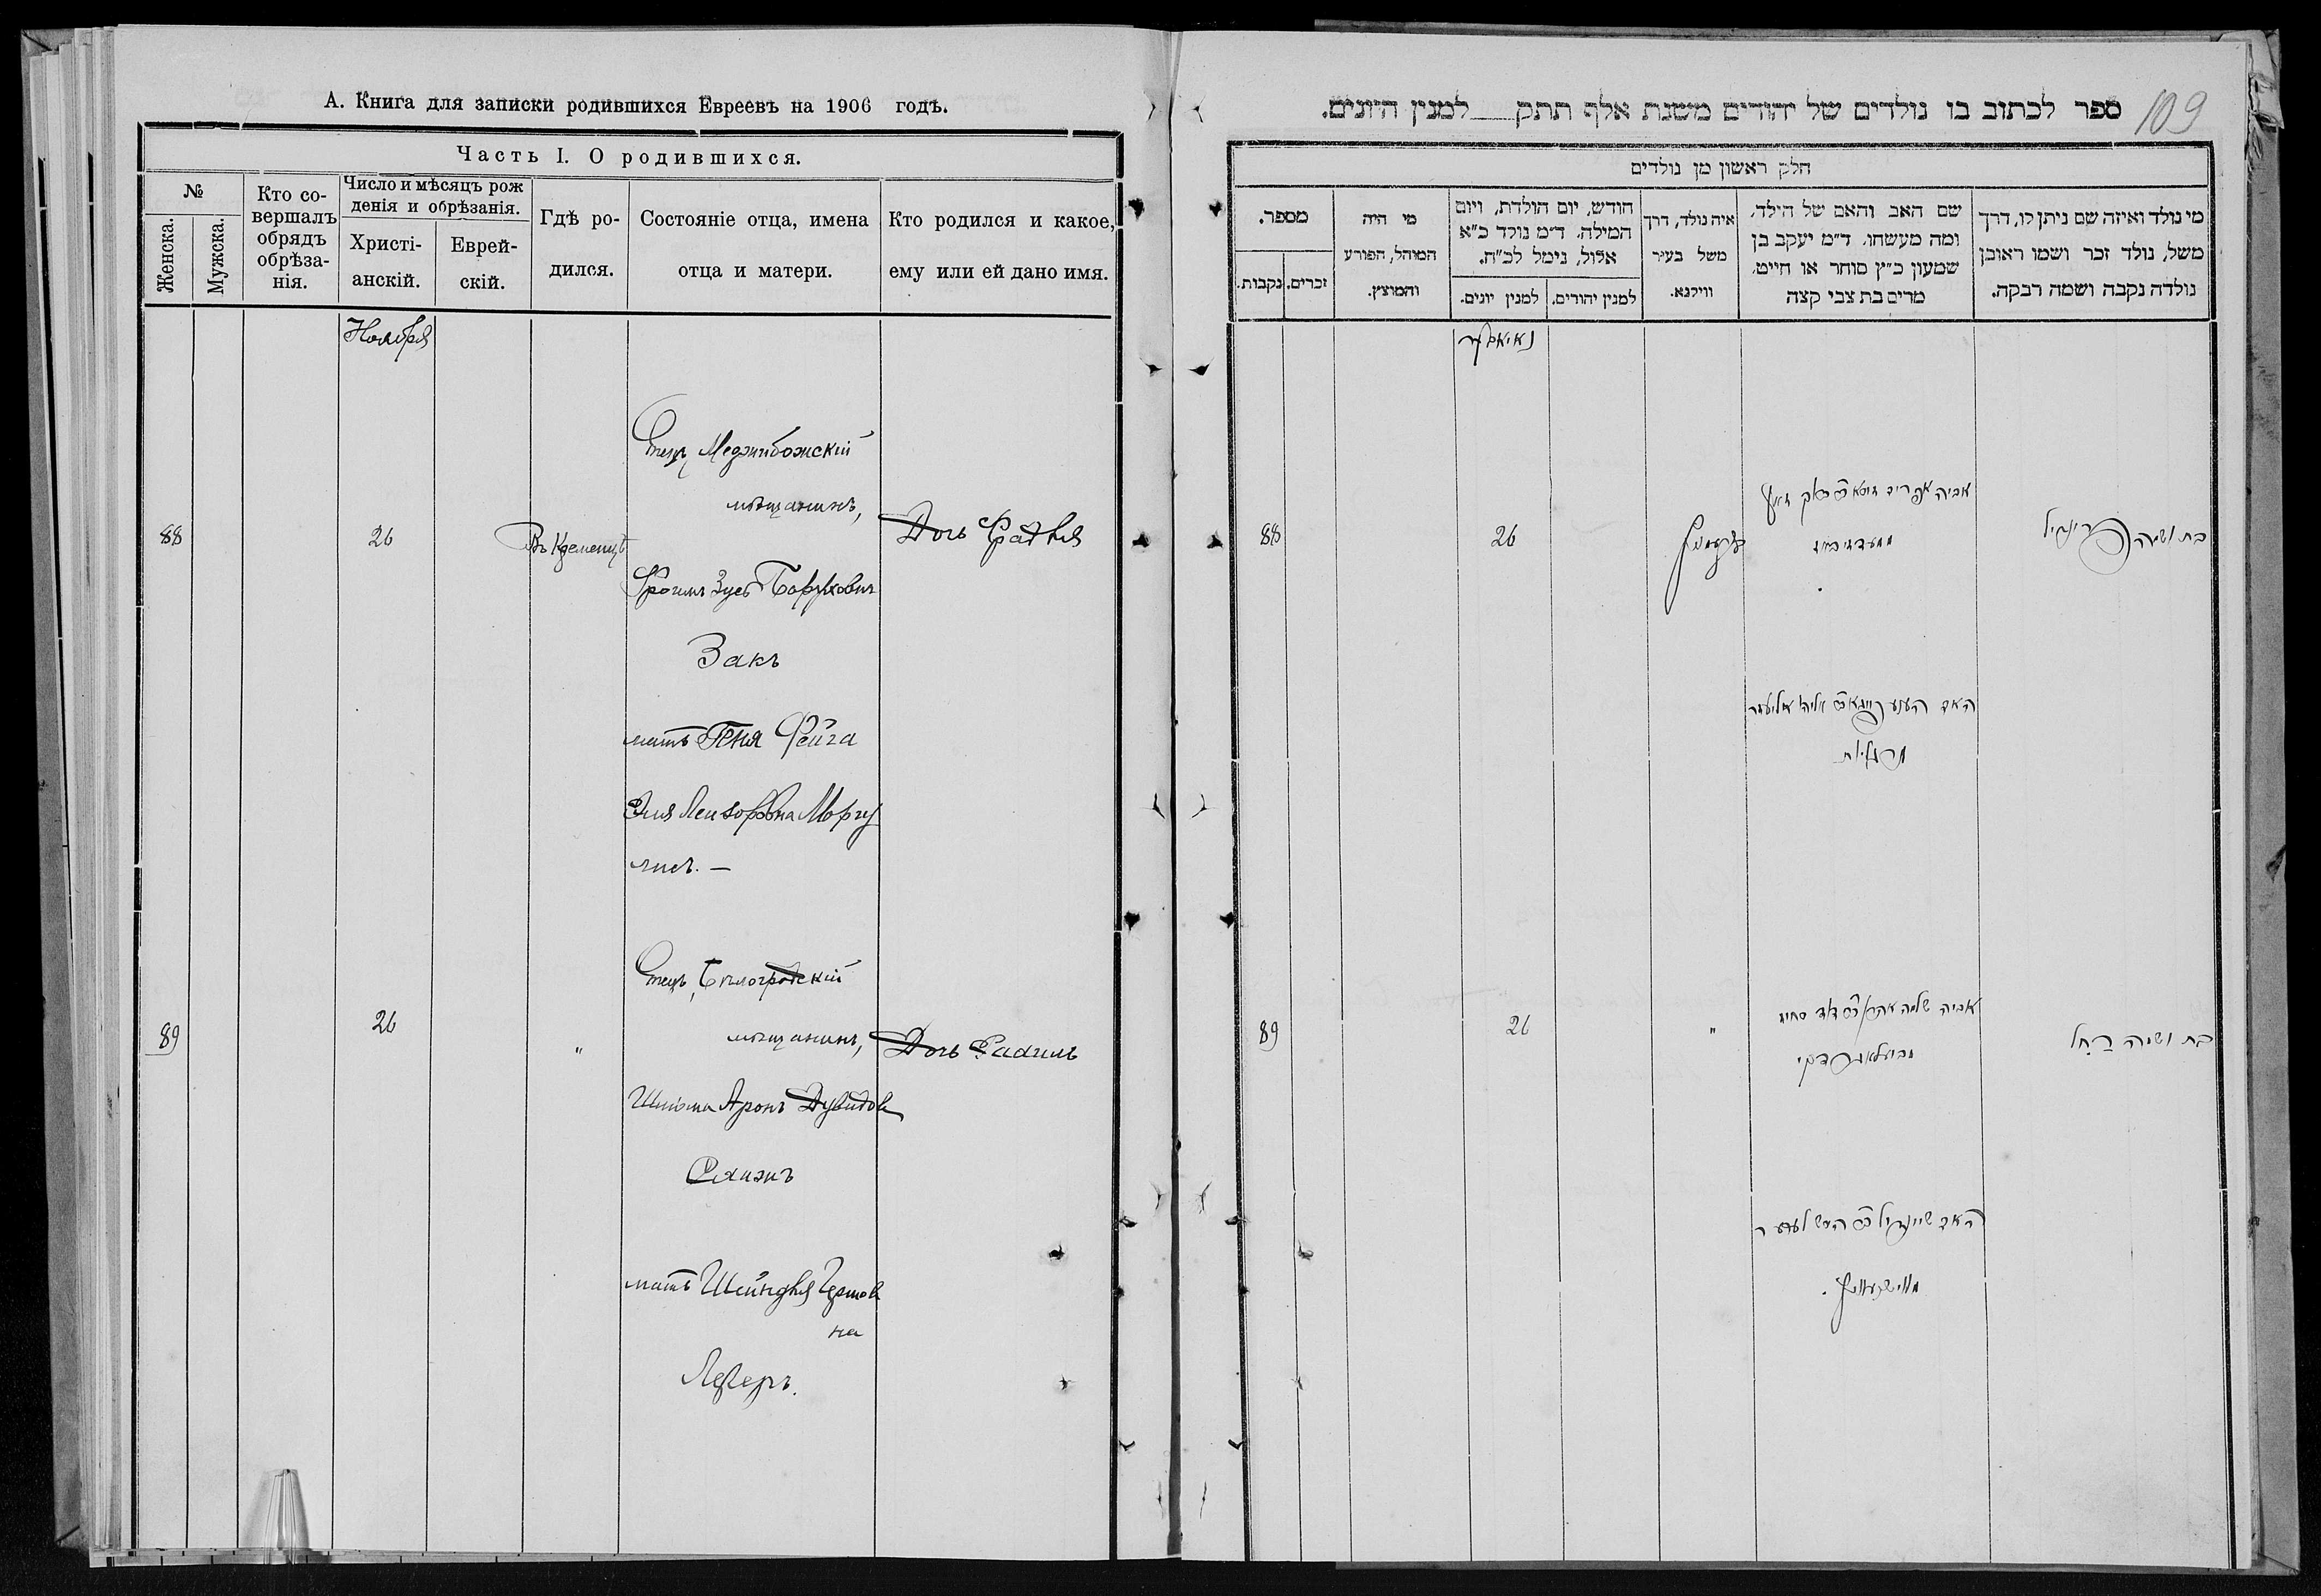 А. Книга для записки родившихся Евреевъ на 1906 годъ.
Часть I. О родившихся.
№
Женска.
Мужска.
Кто со-
вершалъ
обрядъ
обрѣза-
нія.
Число и мѣсяцъ рож
денія и обрѣзанія.
Христі-
анскій.
Еврей-
скій.
Гдѣ ро-
дился.
Состояніе отца, имена
отца и матери.
Кто родился и какое,
ему или ей дано имя.
Ноября
88
26
Въ Кременцѣ
Отецъ Меджибожскій
мѣщанинъ,
Фроимъ Зусь Борухович
Закъ
мать Геня Фейга
Эля Лейзоровна Маргу
лисъ. —
Дочь
89
26
"
Отецъ, Бѣлогродскій
мѣщанинъ,
Шлёма Аронъ Дувидов
мать Шейндля Гершов
на
Ледеръ.
Дочь Рахиль
109
ספר לכתוב בו נולדים של יהודים משנת אלף תתק למנין היונים.
חלק ראשון מן נולדים
מי נולד ואיזה שם ניתן לו, דרך
משל, נולד זכר ושמו ראובן
נולדה נקבה ושמה רבקה.
שם האב והאם של הילד,
ומה מעשהו, ד"מ יעקב בן
שמעון כ"ץ סוחר או חייט,
מרים בת צבי קצה
איה נולד, דרך
משל בעיר
ווילנא.
חודש, יום הולדת, ויום
המילה, ד"מ נולד כ"א
אלול, נימל לכ"ח.
למנין יהודים.
למנין יונים.
מי היה
המוהל, הפורע
והמוצץ.
מספר.
זכרים.
נקבות.
88
26
בת ושמה
האם העניע פייגא אליעזר
מרגליות
89
26
"
אביה שלמה אהרן דוד
בת ושמה רחל
האם שיינדיל